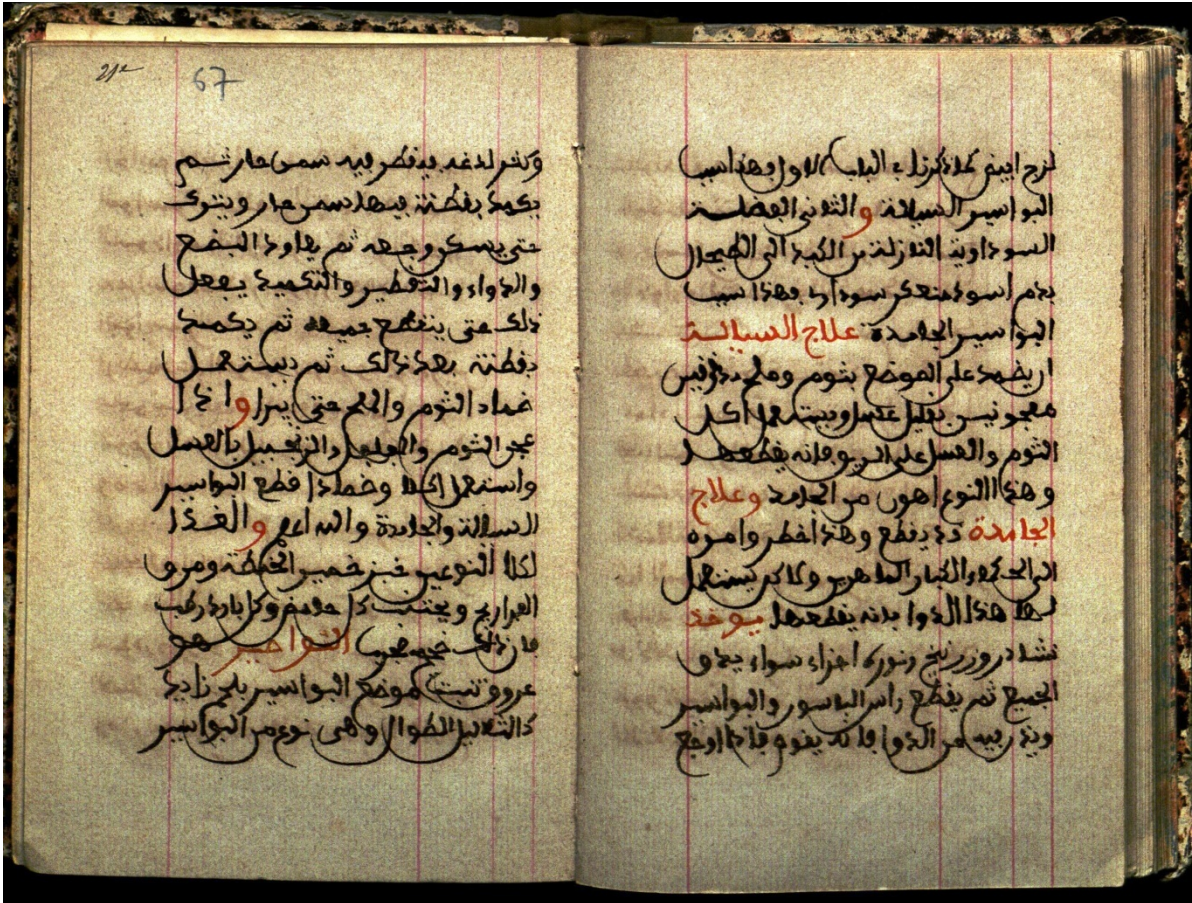 لزج ابيض كما ذكرنا في الباب الاول وهذا سبب
البواسير السيالة والثاني الفضلة
السوداوية النازلة من الكبد الى الطيحال
بدم اسود متعكر سوداوي فهذا سبب
البواسير الجامدة علاج السيالة
ان يضمد على الموضع بثوم وملح
معجونين بقليل عسل ويستعمل اكل
الثوم والعسل على الريق فانه يقطعها
وهذا النوع اهون من الجامد وعلاج
الجامدة يقطع وهذا خطر وامره
الى الحكماء الكبار الماهرين ولاكن يستعمل
لها هذا الدوا بانه يقطعها يوخذ
نشادر وزرنيخ ونورة اجزاء سواء يدق
الجميع ثم يقطع راس الباسور والبواسير
ويذر فيه من الدوا فاذا اوجع
وكثر لدغه فيقطر فيه سمن حار ثم
يكمد بقطنة فيها سمن حار ويترك
حتى يسكن وجعه ثم يعاود البضع
والدواء والتقطير والتكميد يفعل
ذلك حتى ينقطع جميعه ثم يكمد
بقطنة بعد ذالك ثم يستعمل
ضماد الثوم والملح حتى يبرا واذا
عجن الثوم والفلفل والزنجبيل بالعسل
واستعمل اكلا وضمادا قطع البواسير
السيالة والجامدة والله اعلم والغذا
لكلا النوعين خبز خمير الحنطة ومرق
الفراريج ويجتنب كل حامض وكل بارد رطب
فان ذلك النواصير هو
عروق تنبت موضع البواسير بلحم زايد
كالثاليل الطوال وهي نوع من البواسير
67